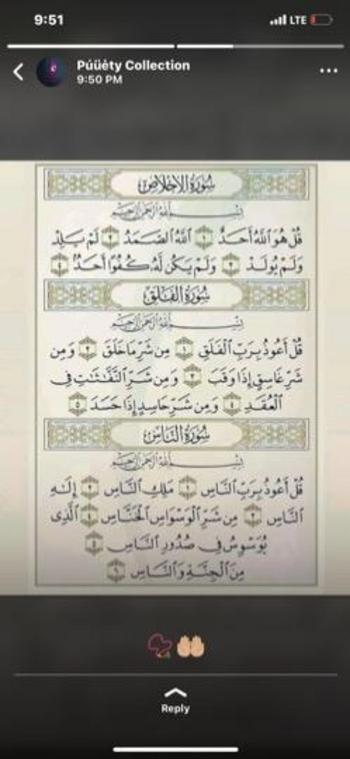 9:51
LTE
Púüêty Collection
9:50 PM
سُورَةُ الإِخْلَاصِ
بِسْمِ اللَّهِ الرَّحْمَنِ الرَّحِيمِ
قُلْ هُوَ ٱللَّهُ أَحَدٌ ١ ٱللَّهُ ٱلصَّمَدُ ٢ لَمْ يَلِدْ
وَلَمْ يُولَدْ ٣ وَلَمْ يَكُن لَّهُۥ كُفُوًا أَحَدٌۢ ٤
سُورَةُ الفَلَقِ
بِسْمِ اللَّهِ الرَّحْمَنِ الرَّحِيمِ
قُلْ أَعُوذُ بِرَبِّ ٱلْفَلَقِ ١ مِن شَرِّ مَا خَلَقَ ٢ وَمِن
شَرِّ غَاسِقٍ إِذَا وَقَبَ ٣ وَمِن شَرِّ ٱلنَّفَّٰثَٰتِ فِى
ٱلْعُقَدِ ٤ وَمِن شَرِّ حَاسِدٍ إِذَا حَسَدَ ٥
سُورَةُ النَّاسِ
بِسْمِ اللَّهِ الرَّحْمَنِ الرَّحِيمِ
قُلْ أَعُوذُ بِرَبِّ ٱلنَّاسِ ١ مَلِكِ ٱلنَّاسِ ٢ إِلَٰهِ
ٱلنَّاسِ ٣ مِن شَرِّ ٱلْوَسْوَاسِ ٱلْخَنَّاسِ ٤ ٱلَّذِى
يُوَسْوِسُ فِى صُدُورِ ٱلنَّاسِ ٥
مِنَ ٱلْجِنَّةِ وَٱلنَّاسِ ٦
Reply